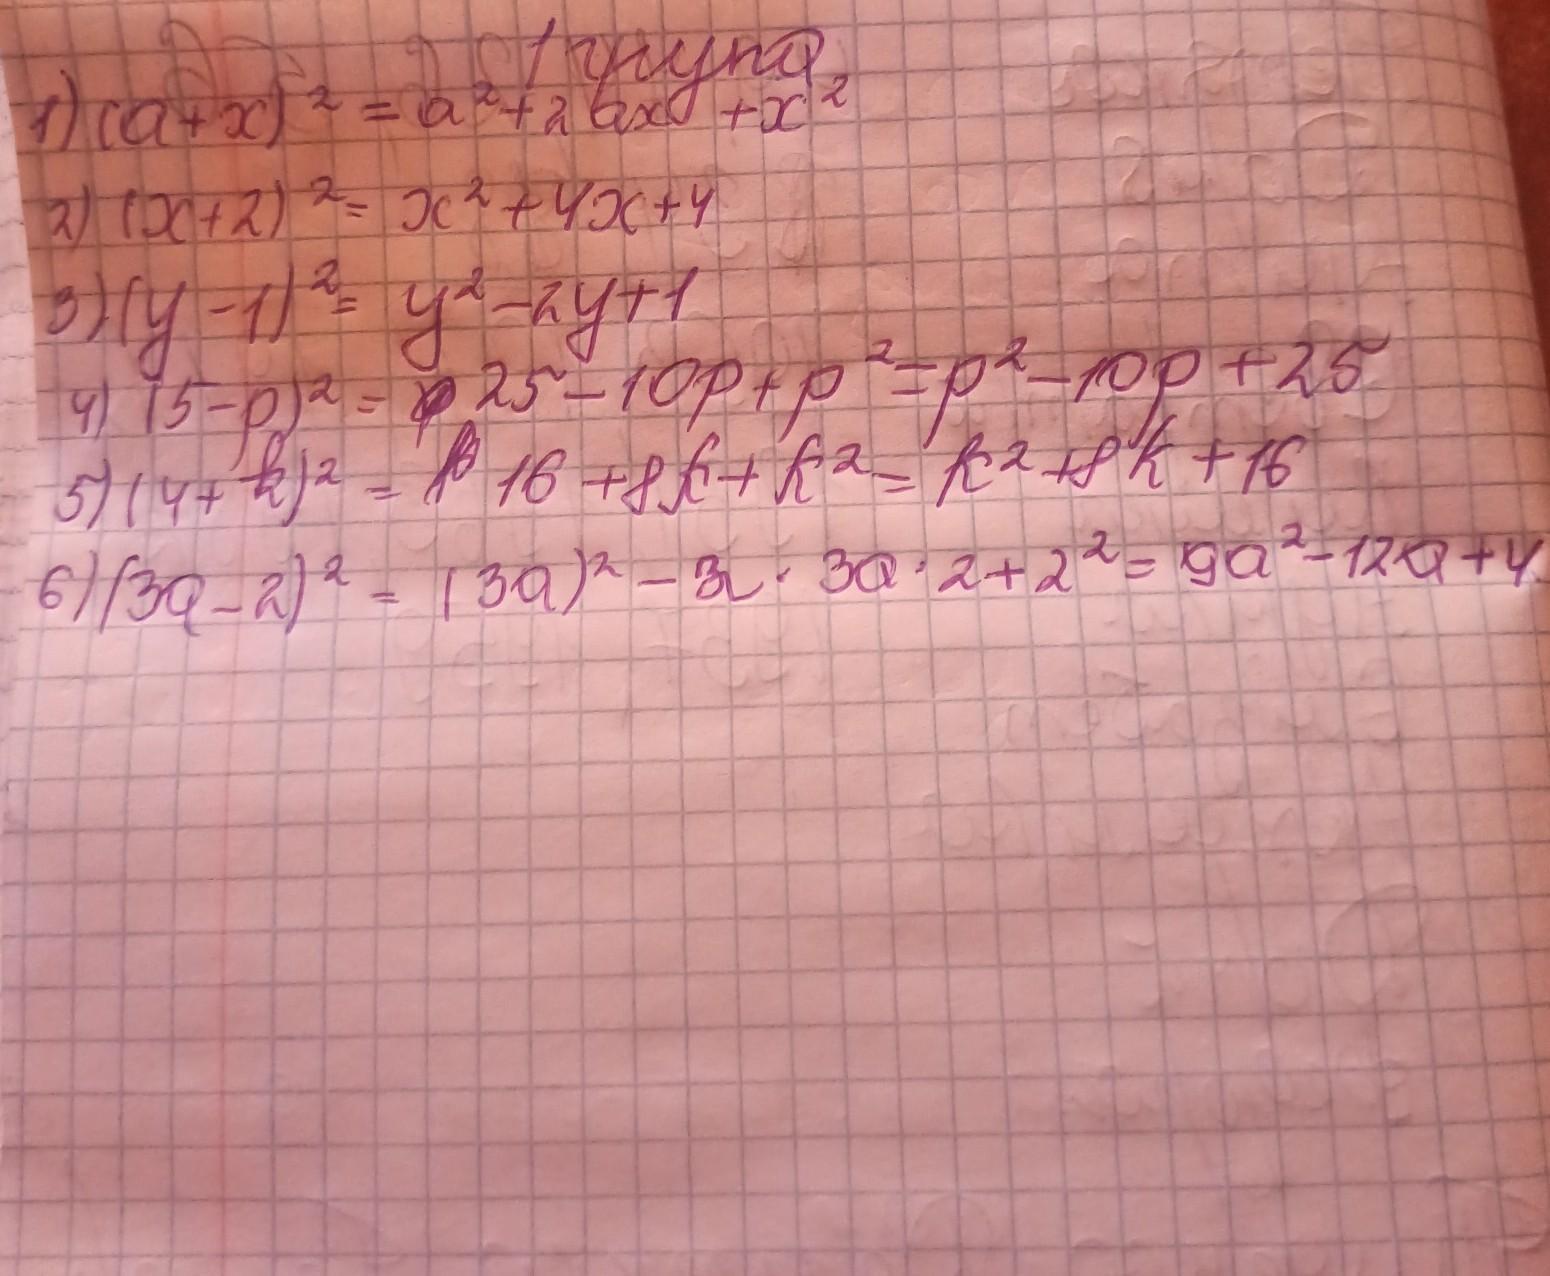 1 група
1) (a+x)² = a² + 2ax + x²
2) (x+2)² = x² + 4x + 4
3) (y-1)² = y² - 2y + 1
4) (5-p)² = 25 - 10p + p² = p² - 10p + 25
5) (4+k)² = 16 + 8k + k² = k² + 8k + 16
6) (3a-2)² = (3a)² - 2 · 3a · 2 + 2² = 9a² - 12a + 4